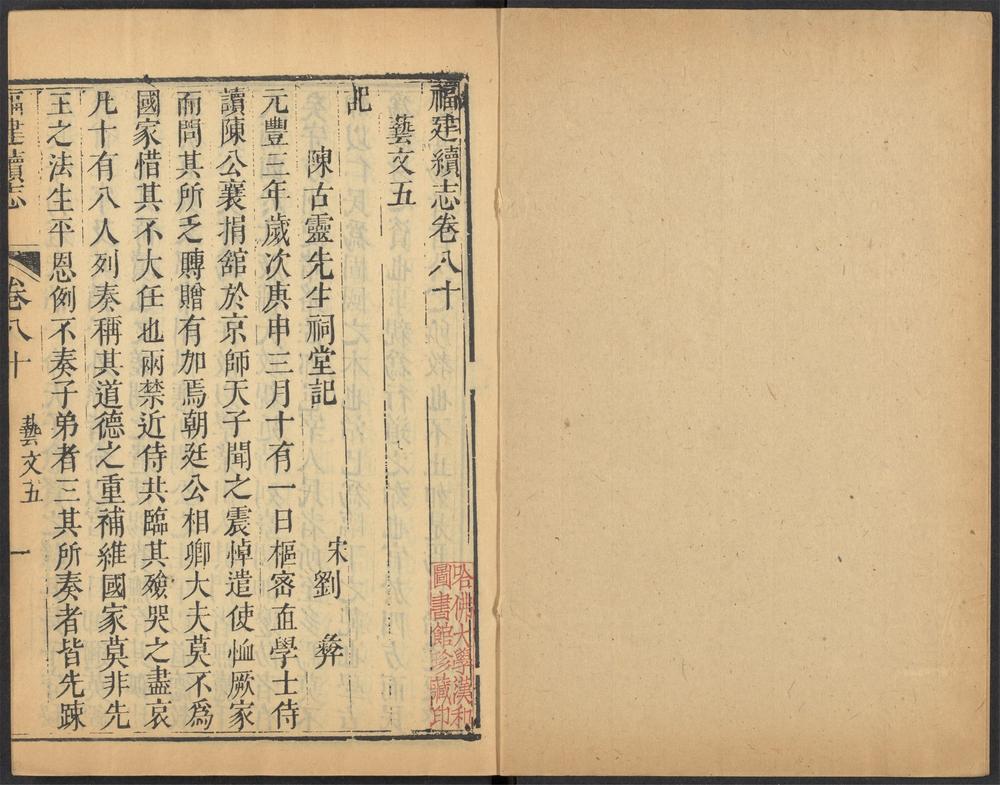 福建續志卷八十
藝文五
記
陳古靈先生祠堂記
宋劉 彝
元豐三年歲次庚申三月十有一日樞密直學士侍
讀陳公襄捐舘於京師天子聞之震悼遣使恤厥家
而問其所乏賻贈有加焉朝廷公相卿大夫莫不爲
國家惜其不大任也兩禁近侍共臨其殮哭之盡哀
凡十有八人列奏稱其道德之重補維國家莫非先
王之法生平恩例不奏子弟者三其所奏者皆先踈
福建續志
卷八十
藝文五
一
哈佛大學漢和
圖書館珍藏印